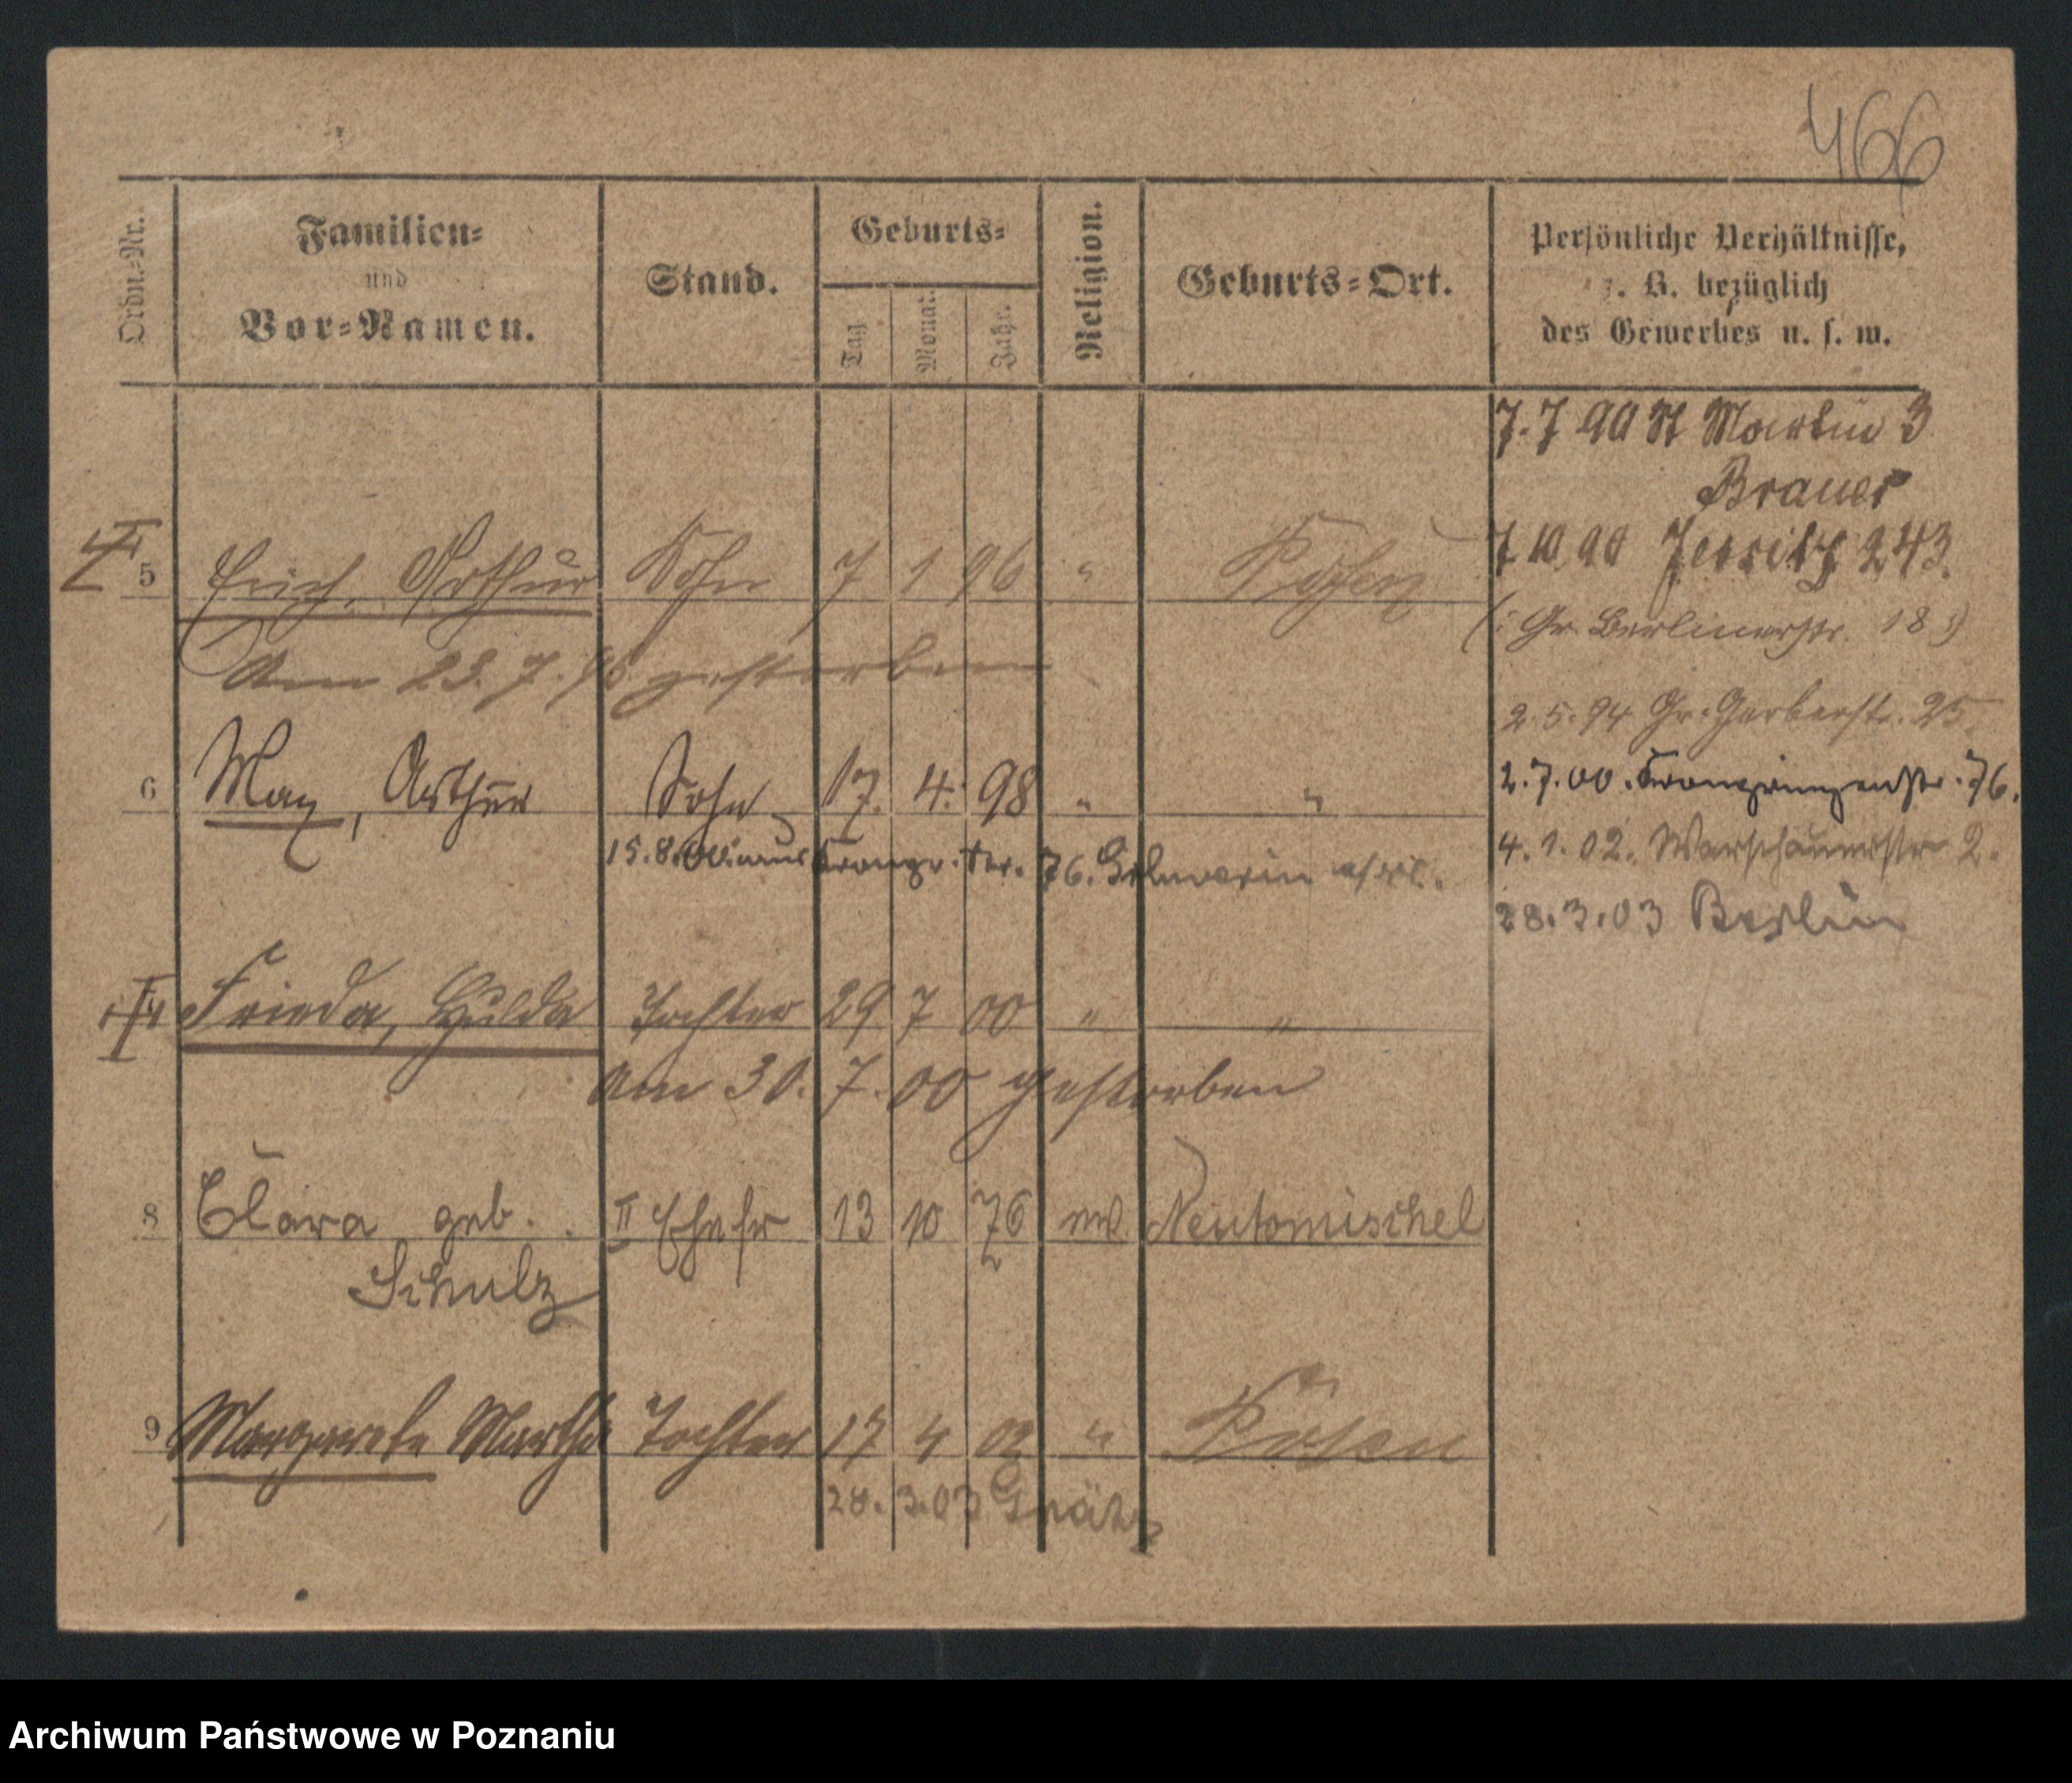 466
Ordn.-Nr.
Familien-
und
Vor-Namen.
Stand.
Geburts-
Tag
Monat.
Jahr.
Religion.
Geburts-Ort.
Persönliche Verhältnisse,
z. B. bezüglich
des Gewerbes u. s. w.
7.7 90 St Martin 3
Brauer
5 Erich, Arthur Sohn 7 1 96 " Posen
7 10 90 Jersitz 243.
(: Gr. Berlinerstr. 18 :)
Am 23. 7. 96 gestorben
2. 5. 94 Gr. Gerberstr. 25
6 Max, Arthur Sohn 17. 4. 98 " "
2. 7. 00. Kronprinzenstr. 76.
15. 8. 00 Kronpr. Str. 76. Schwerin
4. 1. 02. Warschauerstr 2.
28. 3. 03 Berlin
Frieda, Hulda Tochter 29 7 00 " "
am 30. 7. 00 gestorben
8 Clara geb. II Ehefr 13 10 76 ev Neutomischel
Schulz
9 Margarete Martha Tochter 17 4 02 " Posen
28. 3. 03
Archiwum Państwowe w Poznaniu